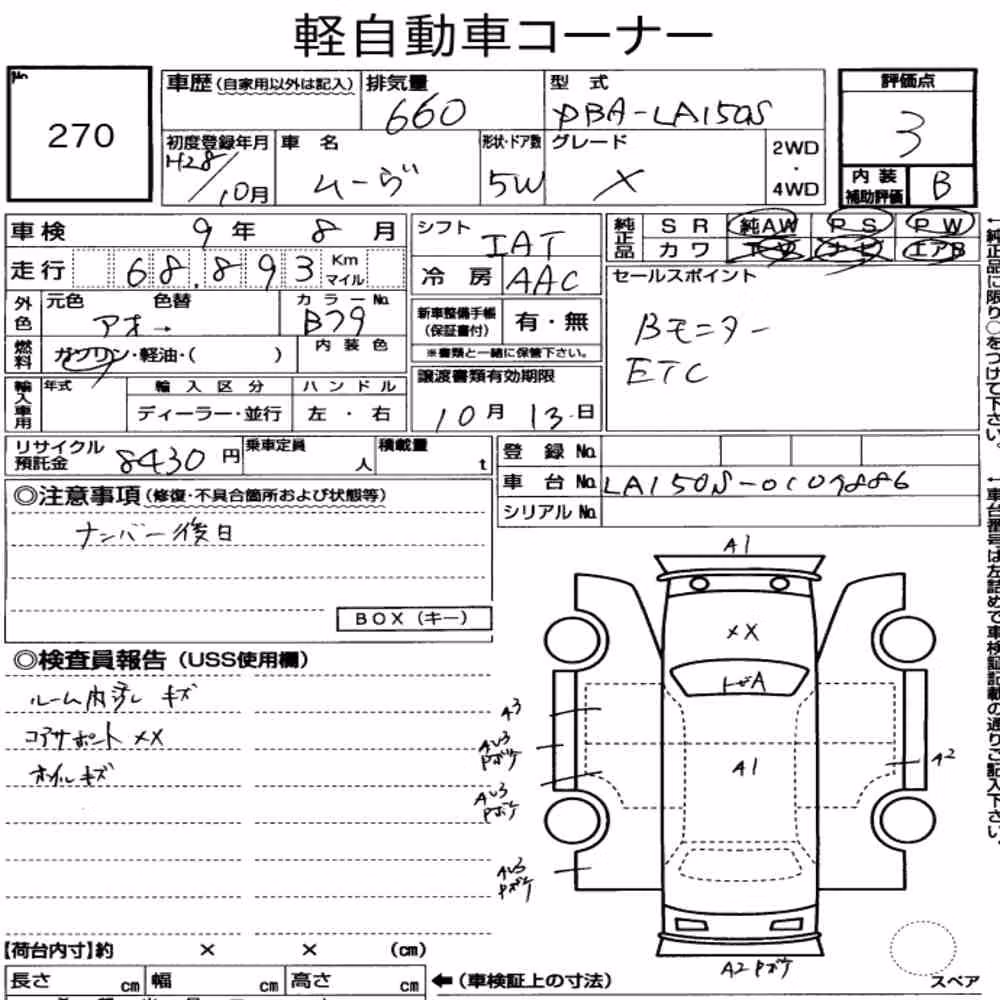 軽自動車コーナー
No.
270
車歴 (自家用以外は記入)
排気量
660
型式
DBA-LA150S
評価点
3
初度登録年月
H28/10月
車名
ムーヴ
形状・ドア数
5W
グレード
X
2WD
・
4WD
内装
補助評価
B
車検 9年 8月
シフト
IAT
純正品
SR 純AW PS PW
カワ ナビ エアB
走行 68.893 Km
マイル
冷房 AAC
セールスポイント
Bモニター
ETC
外色
元色
アオ→
色替
カラーNo.
B79
新車整備手帳
(保証書付)
有・無
※書類と一緒に保管下さい。
燃料
ガソリン・軽油・( )
内装色
輸入車用
年式
輸入区分
ディーラー・並行
ハンドル
左・右
譲渡書類有効期限
10月13日
リサイクル
預託金
8430円
乗車定員
人
積載量
t
登録No.
車台No. LA150S-0109886
シリアルNo.
◎注意事項 (修復・不具合箇所および状態等)
ナンバー後日
BOX (キー)
◎検査員報告 (USS使用欄)
ルーム内汚レ キズ
コアサポート XX
ホイルキズ
A1
XX
トビA
A3
AU3
Pボケ
A1
A2
AU3
Pボケ
AU3
Pボケ
A2 Pボケ
スペア
【荷台内寸】約 × × (cm)
長さ cm 幅 cm 高さ cm
← (車検証上の寸法)
←純正品に限り○をつけて下さい。
←車台番号は左詰めで車検証記載の通りご記入下さい。